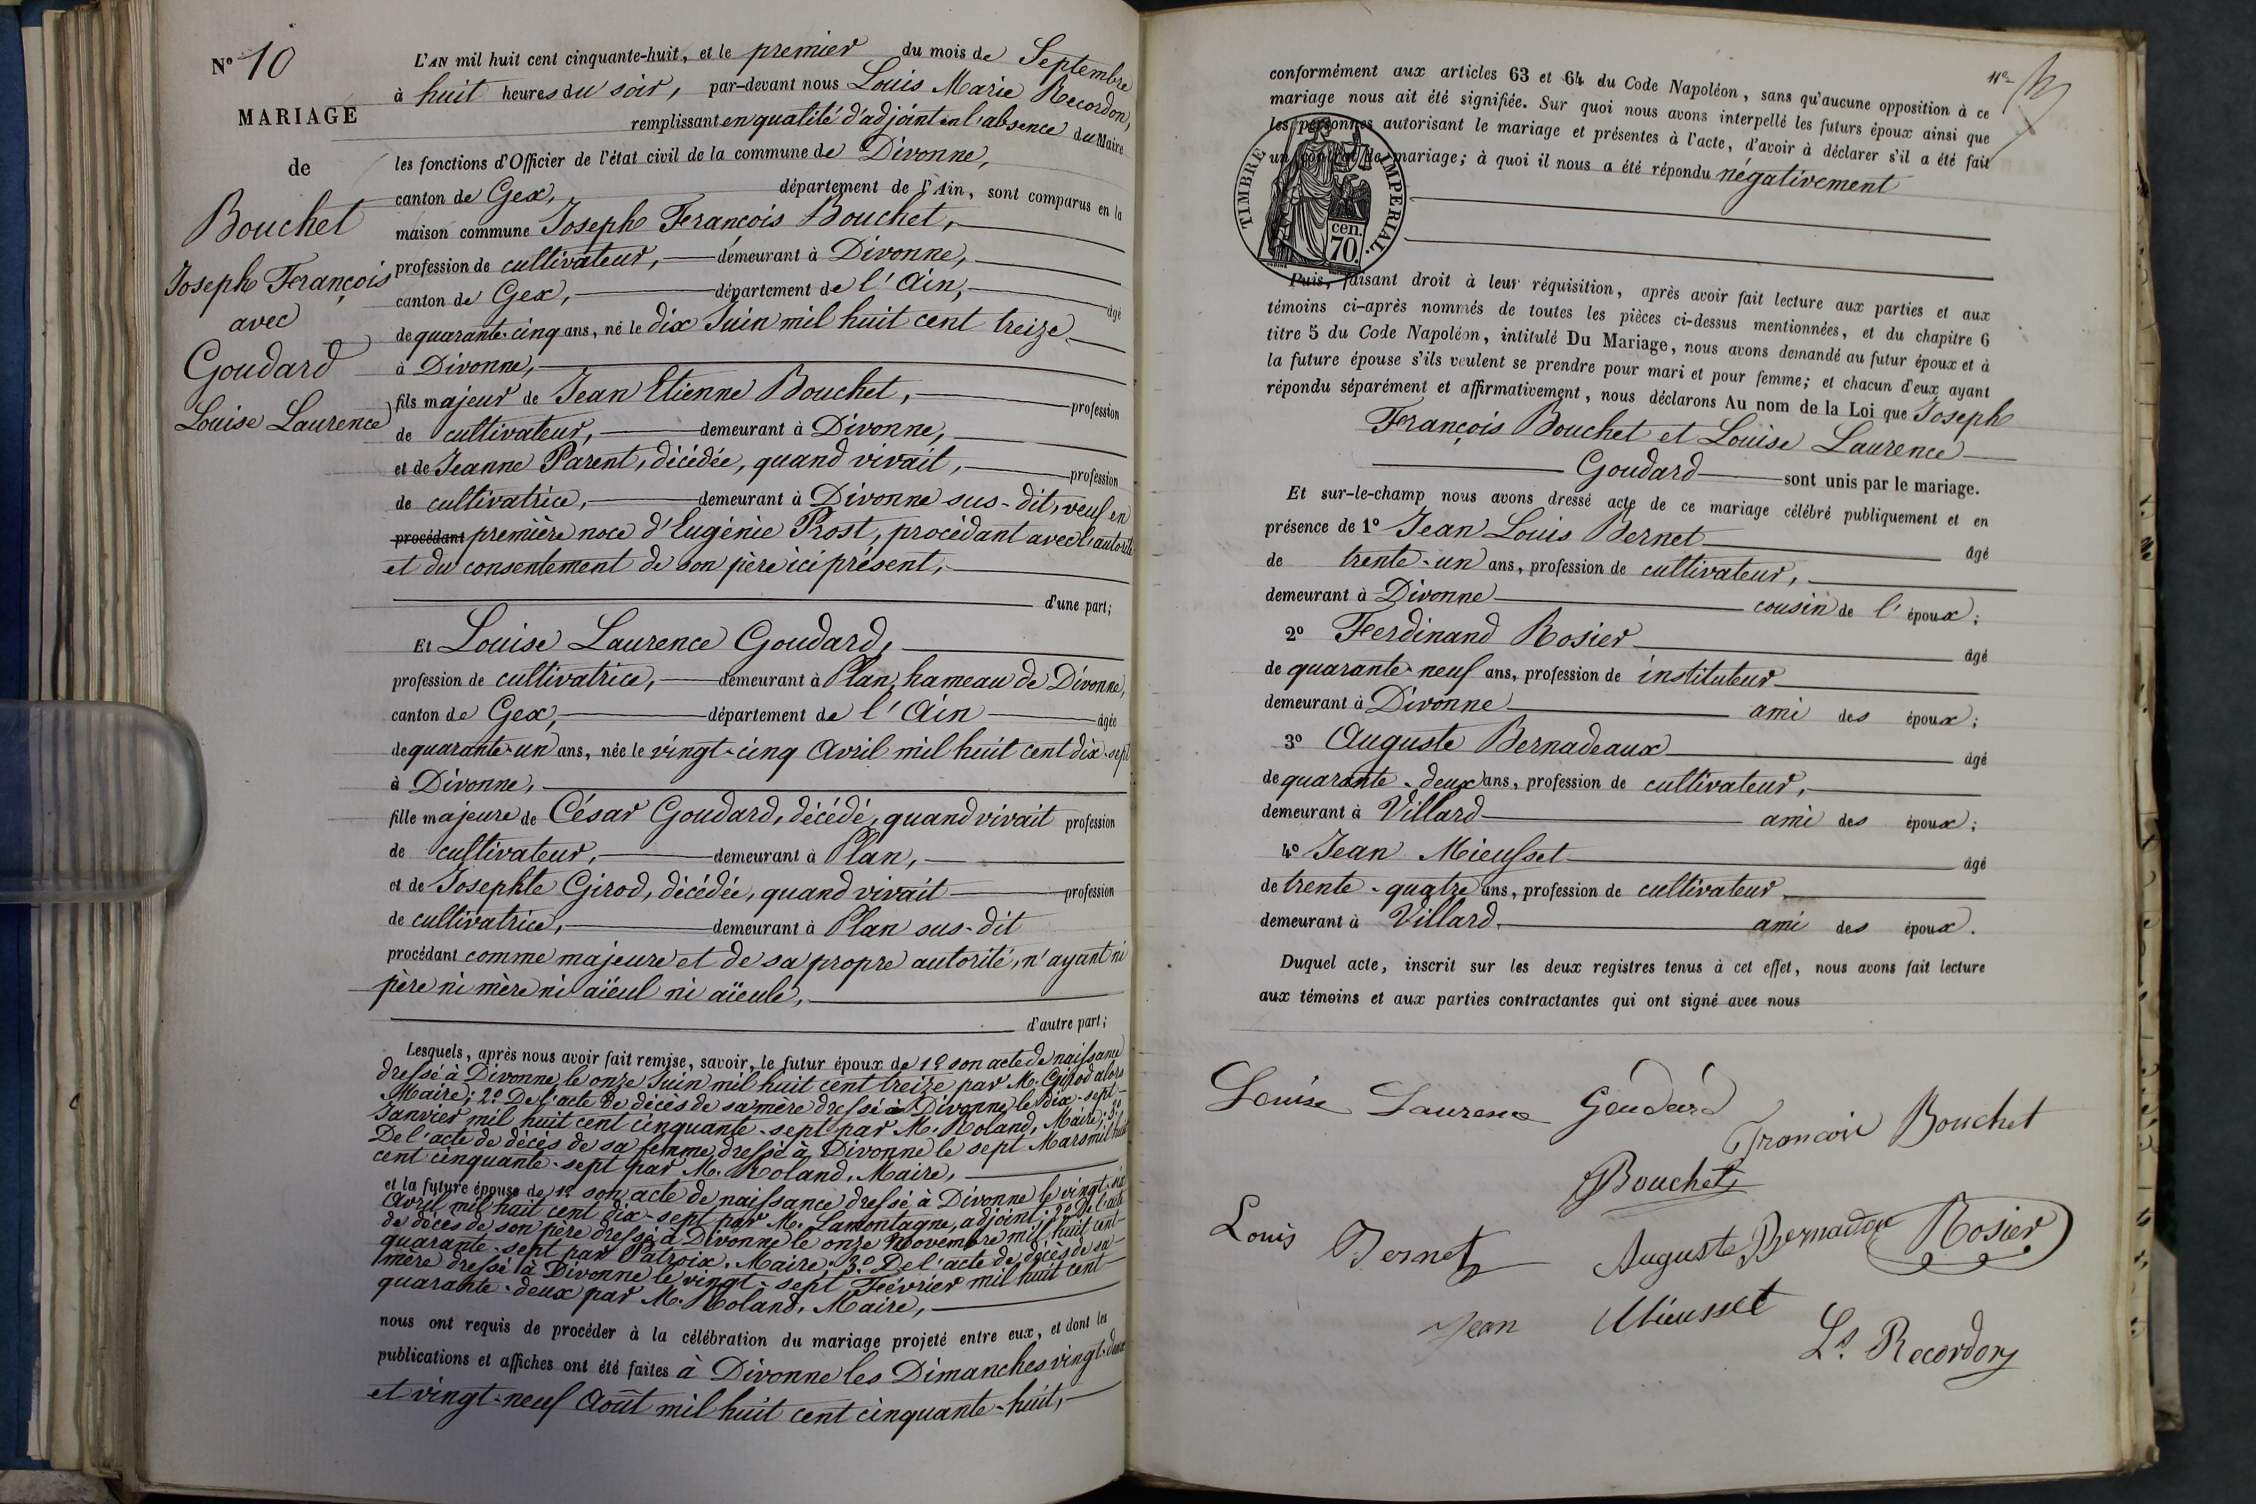 N° 10
MARIAGE
de
Bouchet
Joseph François
avec
Goudard
Louise Laurence
L'AN mil huit cent cinquante-huit, et le premier du mois de Septembre
à huit heures du soir, par-devant nous Louis Marie Recordon,
remplissant en qualité d'adjoint en l'absence du Maire
les fonctions d'Officier de l'état civil de la commune de Divonne,
canton de Gex, département de l'Ain, sont comparus en la
maison commune Joseph François Bouchet,
profession de cultivateur, demeurant à Divonne,
canton de Gex, département de l'Ain, âgé
de quarante-cinq ans, né le dix Juin mil huit cent treize
à Divonne,
fils majeur de Jean Etienne Bouchet, profession
de cultivateur, demeurant à Divonne,
et de Jeanne Parent, décédée, quand vivait, profession
de cultivatrice, demeurant à Divonne sus-dit, veuf en
procédant première noce d'Eugénie Prost, procédant avec l'autorité
et du consentement de son père ici présent,
d'une part;
Et Louise Laurence Goudard,
profession de cultivatrice, demeurant à Plan, hameau de Divonne,
canton de Gex, département de l'Ain âgée
de quarante-un ans, née le vingt-cinq Avril mil huit cent dix-sept
à Divonne,
fille majeure de César Goudard, décédé, quand vivait profession
de cultivateur, demeurant à Plan,
et de Josephte Girod, décédée, quand vivait profession
de cultivatrice, demeurant à Plan sus-dit
procédant comme majeure et de sa propre autorité, n'ayant ni
père ni mère ni aïeul ni aïeule,
d'autre part;
Lesquels, après nous avoir fait remise, savoir, le futur époux de 1° son acte de naissance
dressé à Divonne le onze Juin mil huit cent treize par M. Girod alors
Maire; 2° De l'acte de décès de sa mère dressé à Divonne le dix-sept
Janvier mil huit cent cinquante-sept par M. Roland, Maire; 3°
De l'acte de décès de sa femme dressé à Divonne le sept Mars mil huit
cent cinquante-sept par M. Roland, Maire,
et la future épouse de 1° son acte de naissance dressé à Divonne le vingt-six
Avril mil huit cent dix-sept par M. Lamontagne, adjoint; 2° De l'acte
de décès de son père dressé à Divonne le onze Novembre mil huit cent
quarante-sept par Patroix, Maire; 3° De l'acte de décès de sa
mère dressé à Divonne le vingt-sept Février mil huit cent
quarante-deux par M. Roland, Maire,
nous ont requis de procéder à la célébration du mariage projeté entre eux, et dont les
publications et affiches ont été faites à Divonne les Dimanches vingt-deux
et vingt-neuf Août mil huit cent cinquante-huit,
conformément aux articles 63 et 64 du Code Napoléon, sans qu'aucune opposition à ce
mariage nous ait été signifiée. Sur quoi nous avons interpellé les futurs époux ainsi que
les personnes autorisant le mariage et présentes à l'acte, d'avoir à déclarer s'il a été fait
un contrat de mariage; à quoi il nous a été répondu négativement
TIMBRE IMPERIAL.
cen.
70.
Puis, faisant droit à leur réquisition, après avoir fait lecture aux parties et aux
témoins ci-après nommés de toutes les pièces ci-dessus mentionnées, et du chapitre 6
titre 5 du Code Napoléon, intitulé Du Mariage, nous avons demandé au futur époux et à
la future épouse s'ils veulent se prendre pour mari et pour femme; et chacun d'eux ayant
répondu séparément et affirmativement, nous déclarons Au nom de la Loi que Joseph
François Bouchet et Louise Laurence
Goudard sont unis par le mariage.
Et sur-le-champ nous avons dressé acte de ce mariage célébré publiquement et en
présence de 1° Jean Louis Bernet âgé
de trente-un ans, profession de cultivateur,
demeurant à Divonne cousin de l'époux;
2° Ferdinand Rosier âgé
de quarante-neuf ans, profession de instituteur
demeurant à Divonne ami des époux;
3° Auguste Bernadeaux âgé
de quarante-deux ans, profession de cultivateur,
demeurant à Villard ami des époux;
4° Jean Mieusset âgé
de trente-quatre ans, profession de cultivateur
demeurant à Villard. ami des époux.
Duquel acte, inscrit sur les deux registres tenus à cet effet, nous avons fait lecture
aux témoins et aux parties contractantes qui ont signé avec nous
Louise Laurence Goudard
François Bouchet
Bouchet
Louis Bernet Auguste Bernadon Rosier
Jean Mieusset
Ls. Recordon